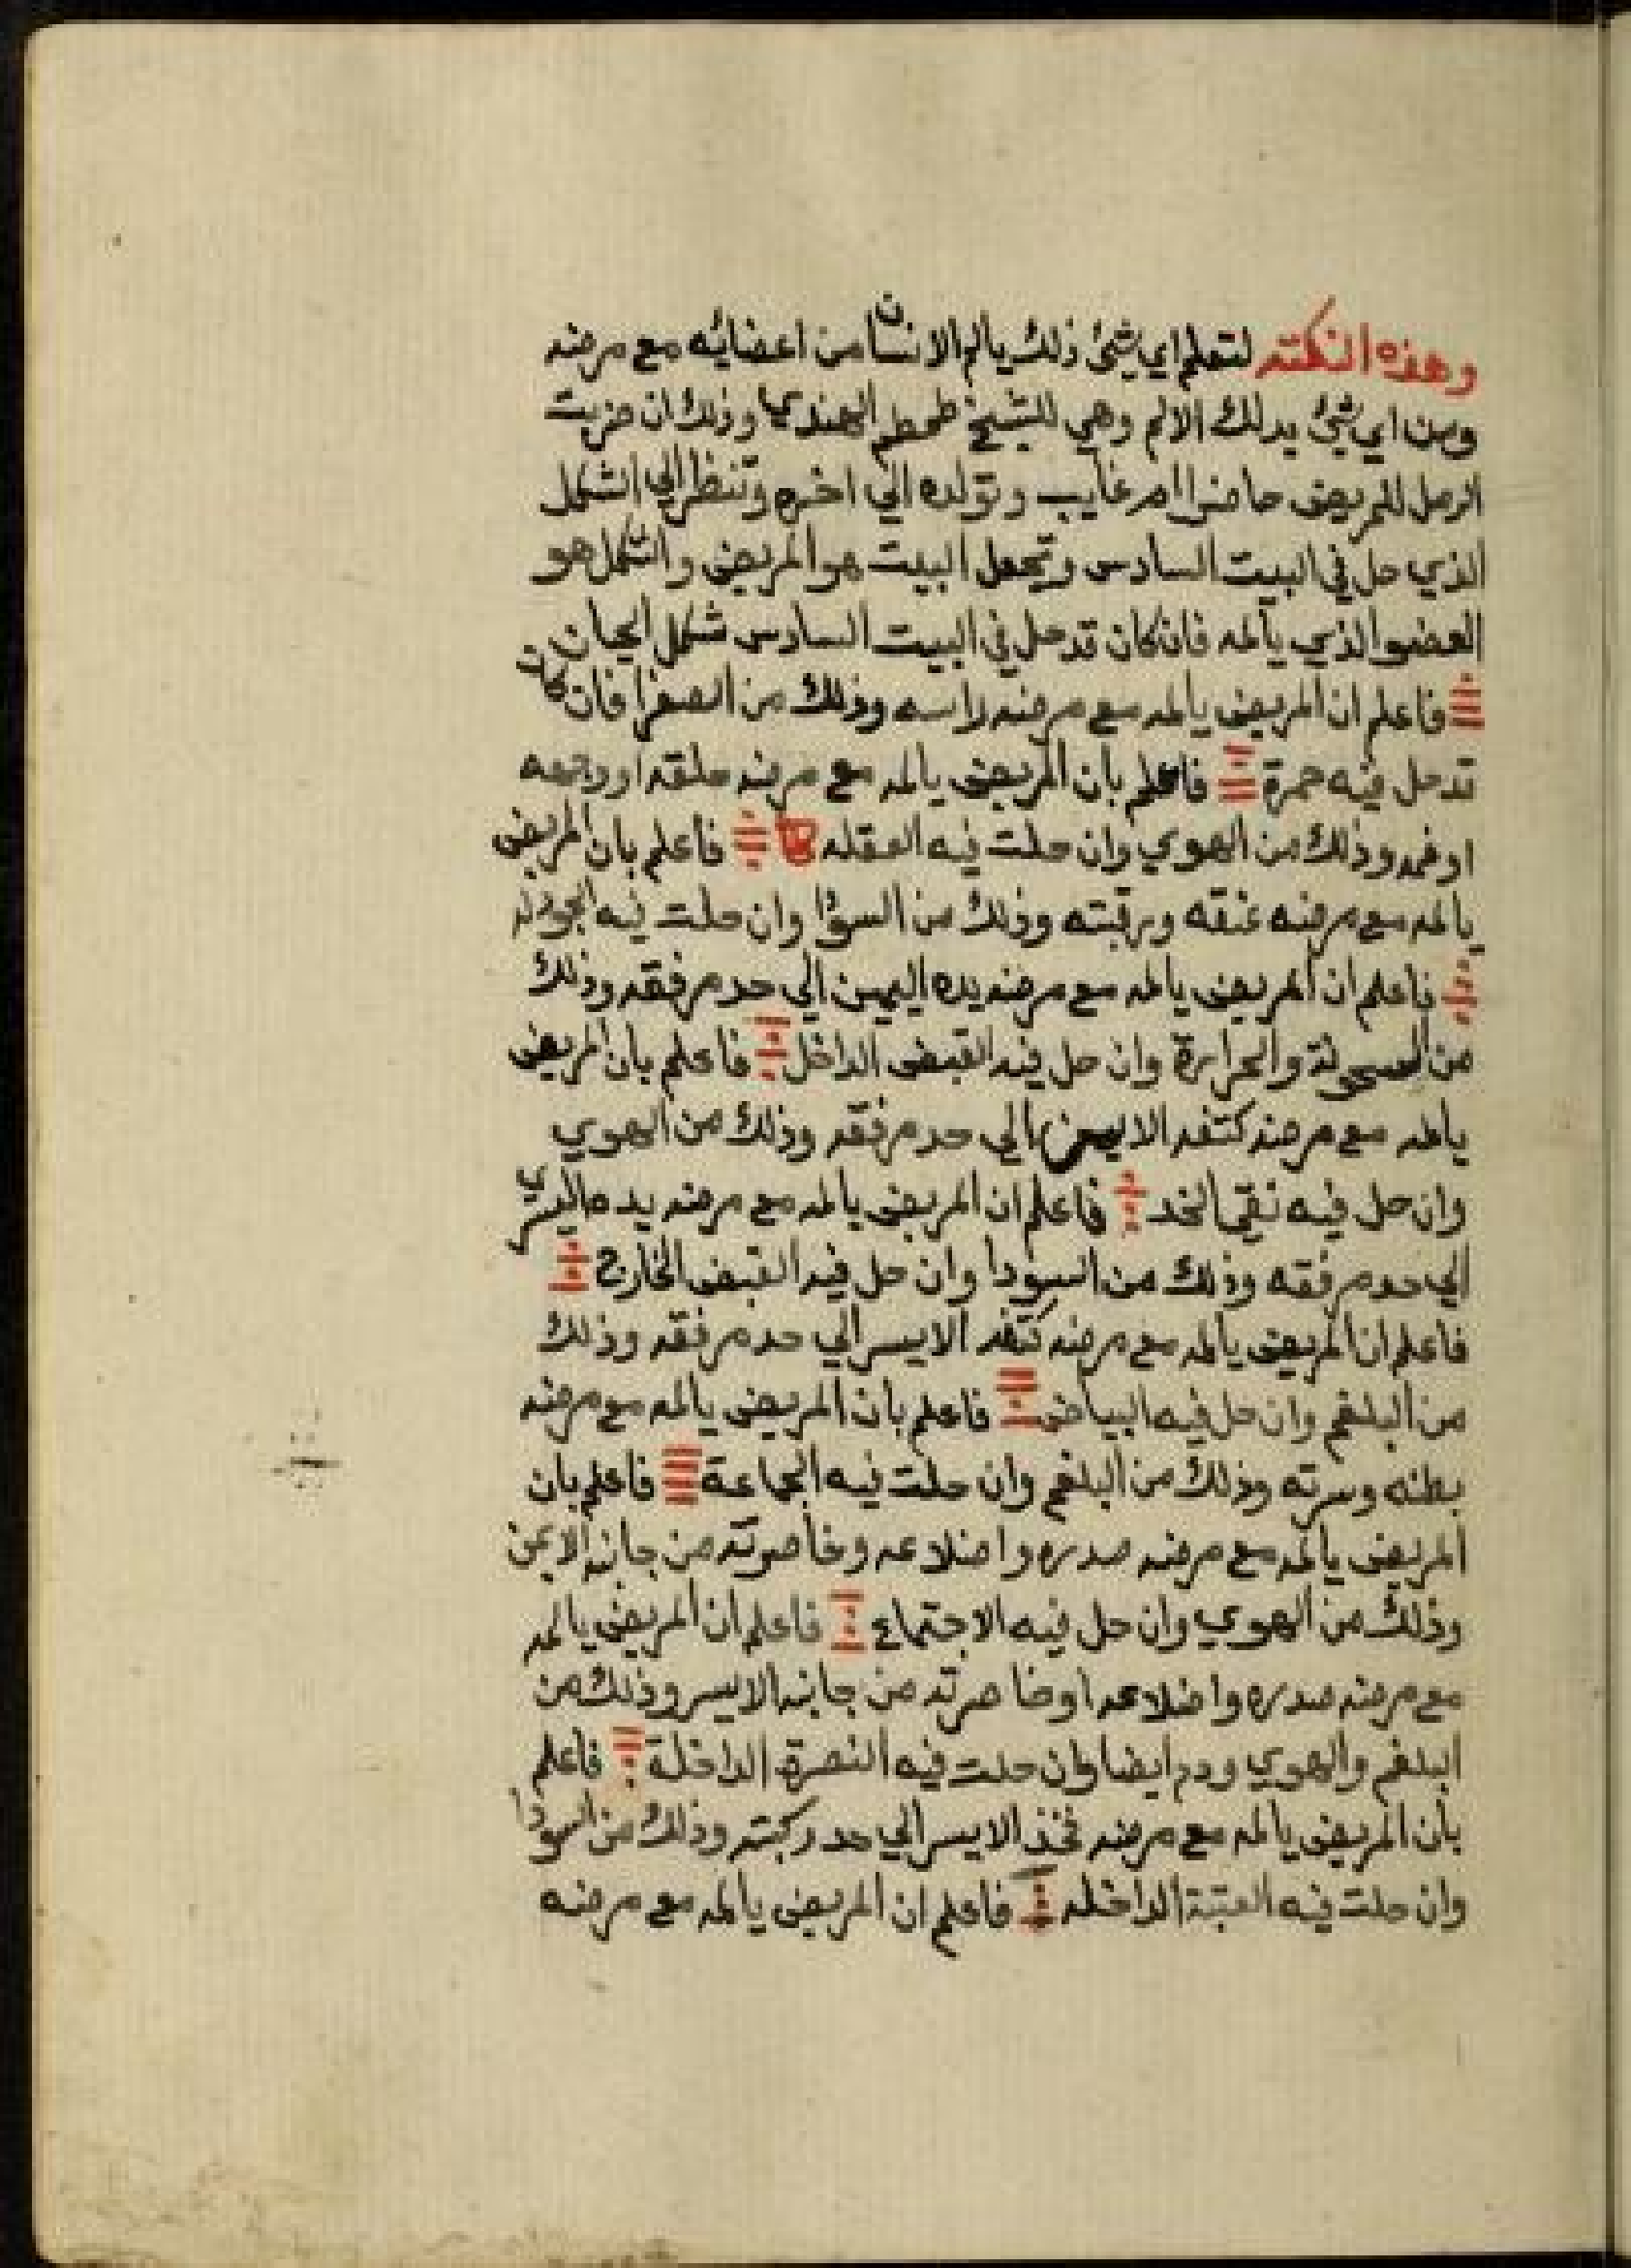 وهذه النكته لتعلم اي شئ ذلك يالم الانسان من اعضائه مع مرضه
ومن اي شئ يدلك الالم وهي للشيخ طمطم الهندي وذلك ان ضربت
الرمل للمريض حاضرا ام غايب وتولده الي اخره وتنظر الي الشكل
الذي حل في البيت السادس وتجعل البيت هو المريض والشكل هو
العضو الذي يألمه فان كان قد حل في البيت السادس شكل الحيان
فاعلم ان المريض يالمه مع مرضه راسه وذلك من الصفرا فان كان
قد حل فيه حمرة فاعلم بان المريض يالمه مع مرضه حلقه او وجهه
او فمه وذلك من الهوي وان حلت فيه العقله فاعلم بان المريض
يالمه مع مرضه عنقه ورقبته وذلك من السودا وان حلت فيه الجودله
فاعلم ان المريض يالمه مع مرضه يده اليمين الي حد مرفقه وذلك
من والحرارة وان حل فيه القبض الداخل فاعلم بان المريض
يالمه مع مرضه كتفه الايمن الي حد مرفقه وذلك من الهوي
وان حل فيه نقي الخد فاعلم ان المريض يالمه مع مرضه يده اليسري
الي حد مرفقه وذلك من السودا وان حل فيه القبض الخارج
فاعلم ان المريض يالمه مع مرضه كتفه الايسر الي حد مرفقه وذلك
من البلغم وان حل فيه البياض فاعلم بان المريض يالمه مع مرضه
بطنه وسرته وذلك من البلغم وان حلت فيه الجماعة فاعلم بان
المريض يالمه مع مرضه صدره واضلاعه وخاصرته من جانبه الايمن
وذلك من الهوي وان حل فيه الاجتماع فاعلم ان المريض يالمه
مع مرضه صدره واضلاعه او خاصرته من جانبه الايسر وذلك من
البلغم والهوي ودم ايضا وان حلت فيه النصرة الداخلة فاعلم
بان المريض يالمه مع مرضه فخذ الايسر الي حد ركبته وذلك من السودا
وان حلت فيه العتبة الداخله فاعلم ان المريض يالمه مع مرضه